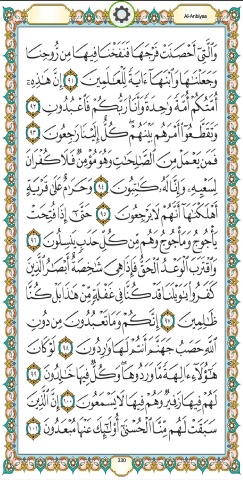 Al-Anbiyaa
وَٱلَّتِىٓ أَحْصَنَتْ فَرْجَهَا فَنَفَخْنَا فِيهَا مِن رُّوحِنَا
وَجَعَلْنَٰهَا وَٱبْنَهَآ ءَايَةً لِّلْعَٰلَمِينَ ٩١ إِنَّ هَٰذِهِۦٓ
أُمَّتُكُمْ أُمَّةً وَٰحِدَةً وَأَنَا۠ رَبُّكُمْ فَٱعْبُدُونِ ٩٢
وَتَقَطَّعُوٓا۟ أَمْرَهُم بَيْنَهُمْ كُلٌّ إِلَيْنَا رَٰجِعُونَ ٩٣
فَمَن يَعْمَلْ مِنَ ٱلصَّٰلِحَٰتِ وَهُوَ مُؤْمِنٌ فَلَا كُفْرَانَ
لِسَعْيِهِۦ وَإِنَّا لَهُۥ كَٰتِبُونَ ٩٤ وَحَرَٰمٌ عَلَىٰ قَرْيَةٍ
أَهْلَكْنَٰهَآ أَنَّهُمْ لَا يَرْجِعُونَ ٩٥ حَتَّىٰٓ إِذَا فُتِحَتْ
يَأْجُوجُ وَمَأْجُوجُ وَهُم مِّن كُلِّ حَدَبٍ يَنسِلُونَ ٩٦
وَٱقْتَرَبَ ٱلْوَعْدُ ٱلْحَقُّ فَإِذَا هِىَ شَٰخِصَةٌ أَبْصَٰرُ ٱلَّذِينَ
كَفَرُوا۟ يَٰوَيْلَنَا قَدْ كُنَّا فِى غَفْلَةٍ مِّنْ هَٰذَا بَلْ كُنَّا
ظَٰلِمِينَ ٩٧ إِنَّكُمْ وَمَا تَعْبُدُونَ مِن دُونِ
ٱللَّهِ حَصَبُ جَهَنَّمَ أَنتُمْ لَهَا وَٰرِدُونَ ٩٨ لَوْ كَانَ
هَٰٓؤُلَآءِ ءَالِهَةً مَّا وَرَدُوهَا وَكُلٌّ فِيهَا خَٰلِدُونَ ٩٩
لَهُمْ فِيهَا زَفِيرٌ وَهُمْ فِيهَا لَا يَسْمَعُونَ ١٠٠ إِنَّ ٱلَّذِينَ
سَبَقَتْ لَهُم مِّنَّا ٱلْحُسْنَىٰٓ أُو۟لَٰٓئِكَ عَنْهَا مُبْعَدُونَ ١٠١
330